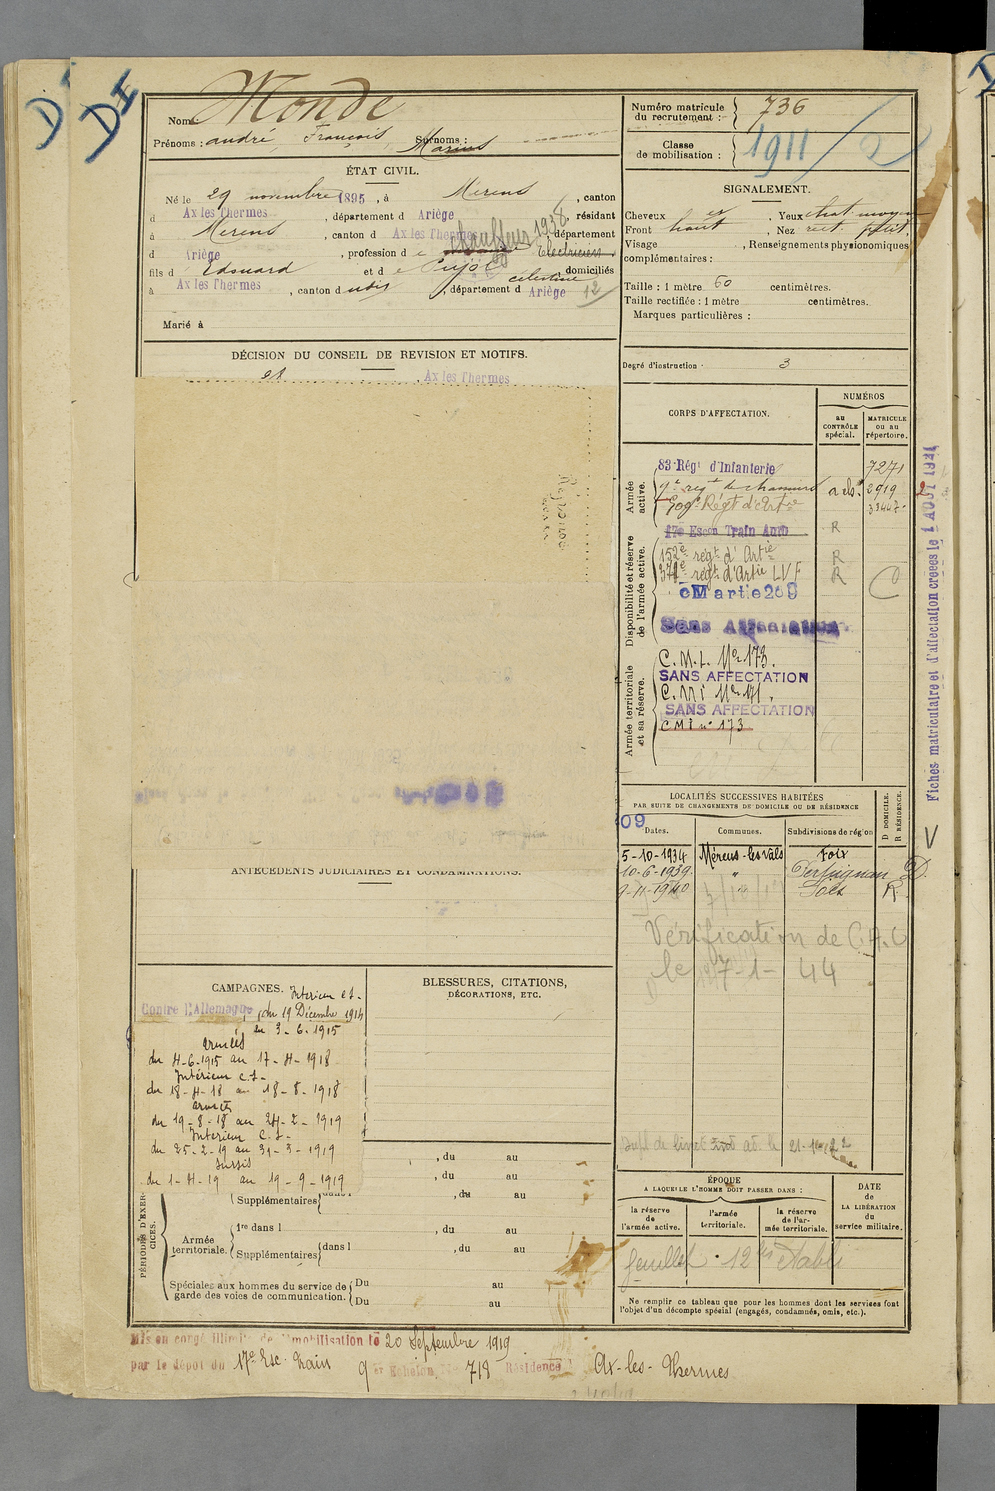 DI
DI
Nom: Monde
Prénoms : andré, François, Surnoms :
Marius
Numéro matricule
du recrutement : 736
Classe
de mobilisation : 1911
ÉTAT CIVIL.
Né le 29 novembre 1895, à Merens, canton
d Ax les Thermes, département d Ariège, résidant
à Merens, canton d Ax les Thermes, département
d Ariège, profession d e Electricien
chauffeur 1938
fils d Edouard et d e Pujol célestine domiciliés
à Ax les Thermes, canton d udis, département d Ariège
12
Marié à
SIGNALEMENT.
Cheveux, Yeux chat moyen
Front haut, Nez rect. petit.
Visage, Renseignements physionomiques
complémentaires :
Taille : 1 mètre 60 centimètres.
Taille rectifiée : 1 mètre centimètres.
Marques particulières :
Degré d'instruction : 3
DÉCISION DU CONSEIL DE REVISION ET MOTIFS.
Ax les Thermes
CORPS D'AFFECTATION.
NUMÉROS
au
CONTRÔLE
spécial.
MATRICULE
ou au
répertoire.
Armée
active.
83 Régt d'Infanterie 7271
9e regt de chasseurs a ch. 2919
209e Régt d'Artie
Disponibilité et réserve
de l'armée active.
17e Escon Train Auto R
152e régt d'Artie R
372e régt d'Artie LVF R
cMartie209
Sans Affectation
Armée territoriale
et sa réserve.
C.M.I. No 173.
SANS AFFECTATION
C.M.I No 171.
SANS AFFECTATION
CMI no 173
Fiches matriculaire et d'affectation créées le 1 AOUT 1924
LOCALITÉS SUCCESSIVES HABITÉES
PAR SUITE DE CHANGEMENTS DE DOMICILE OU DE RÉSIDENCE
D DOMICILE.
R RÉSIDENCE.
09
Dates. Communes. Subdivisions de région
5-10-1934 Mérens-les-Vals Foix
10-6-1939 " Perpignan D.
9-11-1940 " Foix R
Vérification de C.A.C
le 17-1-44
ANTÉCÉDENTS JUDICIAIRES ET CONDAMNATIONS.
CAMPAGNES.
Contre l'Allemagne
Intérieur c.s.
du 19 Décembre 1914
au 3-6-1915
armées
du 4-6-1915 au 17-4-1918
Intérieur C.S.
du 18-4-18 au 18-8-1918
armées
du 19-8-18 au 24-2-1919
Intérieur C.S.
du 25-2-19 au 31-3-1919
sursis
du 1-4-19 au 19-9-1919
BLESSURES, CITATIONS,
DÉCORATIONS, ETC.
, du au
, du au
PÉRIODES D'EXERCICES.
Supplémentaires dans l , du au
Armée
territoriale.
1re dans l , du au
Supplémentaires dans l , du au
Spéciales aux hommes du service de
garde des voies de communication.
Du au
Du au
ÉPOQUE
A LAQUELLE L'HOMME DOIT PASSER DANS :
la réserve
de
l'armée active.
l'armée
territoriale.
la réserve
de l'ar-
mée territoriale.
DATE
de
LA LIBÉRATION
du
service militaire.
feuillet 12 bis établi
Ne remplir ce tableau que pour les hommes dont les services font
l'objet d'un décompte spécial (engagés, condamnés, omis, etc.).
Mis en congé illimité de démobilisation le 20 Septembre 1919
par le dépôt du 17e Esc. Train 9 er Echelon, No 718 Résidence Ax-les-Thermes